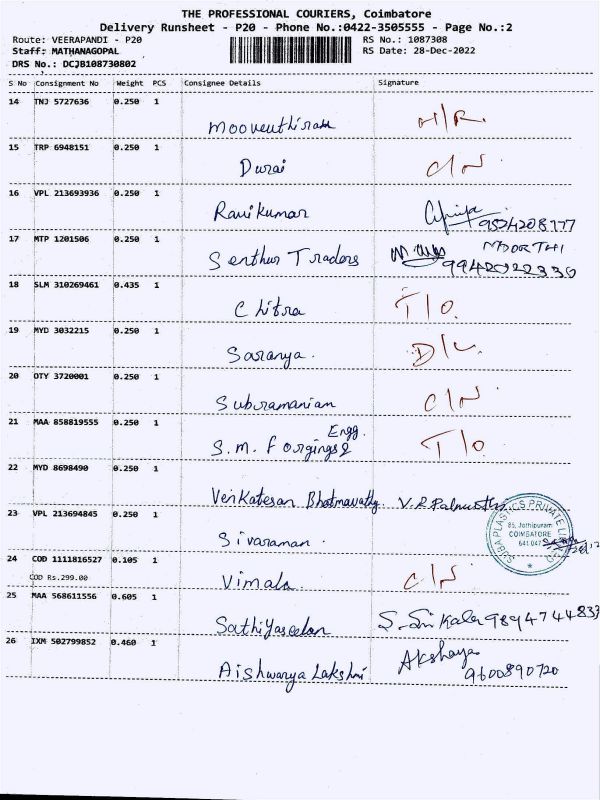 THE PROFESSIONAL COURIERS, Coimbatore
Delivery Runsheet - P20 - Phone No.:0422-3505555 - Page No.:2
Route: VEERAPANDI - P20 RS No.: 1087308
Staff: MATHANAGOPAL RS Date: 28-Dec-2022
DRS No.: DCJB108730802
S No Consignment No Weight PCS Consignee Details Signature
14 TNJ 5727636 0.250 1
Mooventhiran H/R.
15 TRP 6948151 0.250 1
Durai C/N
16 VPL 213693936 0.250 1
Ravikumar 9524208777
17 MTP 1201506 0.250 1
Senthur Traders MOORTHI
9942022330
18 SLM 310269461 0.435 1
Chitra T/O.
19 MYD 3032215 0.250 1
Saranya. D/L.
20 OTY 3720001 0.250 1
Subramanian C/N
21 MAA 858819555 0.250 1
S.m. Forgings & Engg. T/O
22 MYD 8698490 0.250 1
Venkatesan V.R
23 VPL 213694845 0.250 1
Sivaraman.
SUBA PLASTICS PRIVATE
85, Jothipuram
COIMBATORE
641 047
24 COD 1111816527 0.105 1
COD Rs.299.00
Vimala C/N
25 MAA 568611556 0.605 1
Sathiyaseelan S. Sri Kala 9894744833
26 IXM 502799852 0.460 1
Aishwarya Lakshmi Akshaya
9600890720